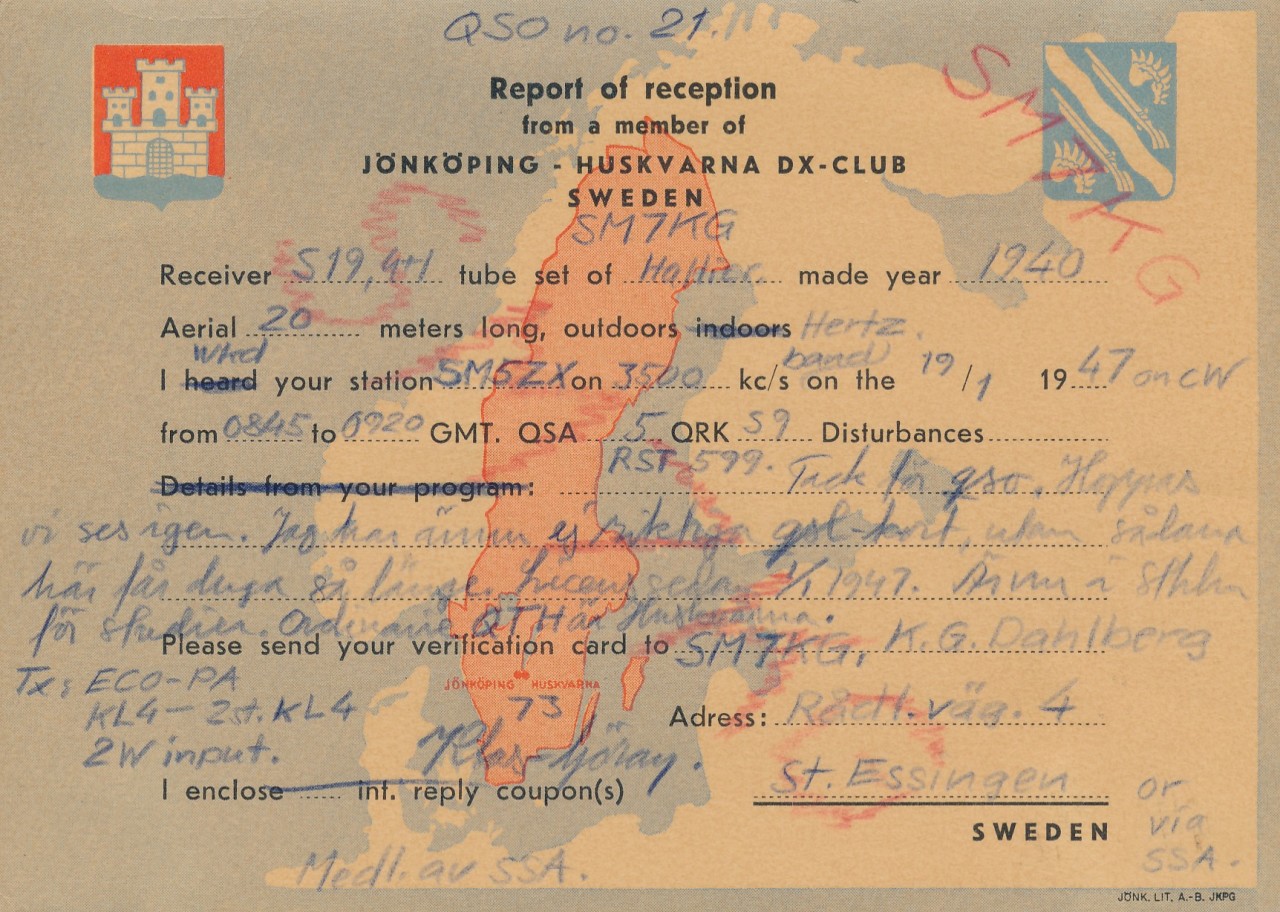 QSO no. 21.
SM7KG
Report of reception
from a member of
JÖNKÖPING - HUSKVARNA DX-CLUB
SWEDEN
SM7KG
Receiver S19, 4+1 tube set of made year 1940
Aerial 20 meters long, outdoors indoors Hertz.
wkd band
I heard your station SM5ZX on 3500 kc/s on the 19/1 1947 on CW
from 0845 to 0920 GMT. QSA 5 QRK S9 Disturbances
RST 599. Tack för qso. Hoppas
Details from your program:
vi ses igen. Jag har ännu ej riktiga qsl-kort, utan sådana
här får duga så länge. Licens sedan 1/1 1947. Är nu i Sthlm
för studier. Ordinarie QTH är Huskvarna.
Please send your verification card to SM7KG, K.G. Dahlberg
Tx: ECO-PA
JÖNKÖPING HUSKVARNA
KL4 - 2st. KL4
73
Adress: Rådl. väg. 4
2W input.
Klas-Göran.
I enclose int. reply coupon(s)
St. Essingen
or
via
SSA.
SWEDEN
Medl. av SSA.
JÖNK. LIT. A.-B. JKPG